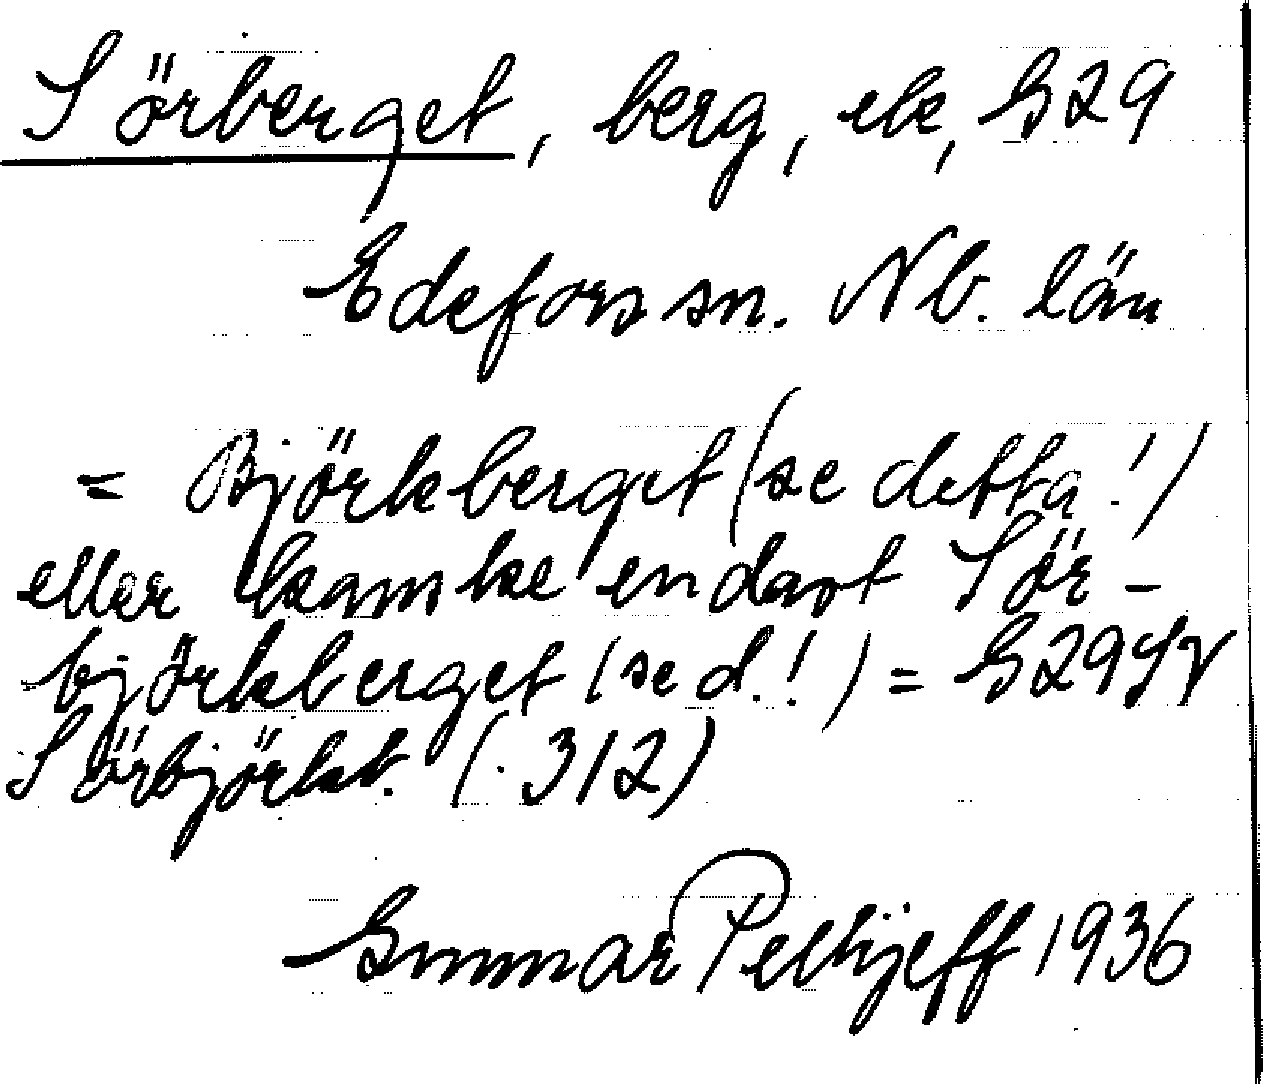 Sörberget, berg, ek, G29
Edefors sn. Nb. län
= Björkberget (se detta!)
eller kanske endast Sör-
björkberget (se d.!) = G29
Sörbjörkb. (312)
Gunnar Pellijeff 1936